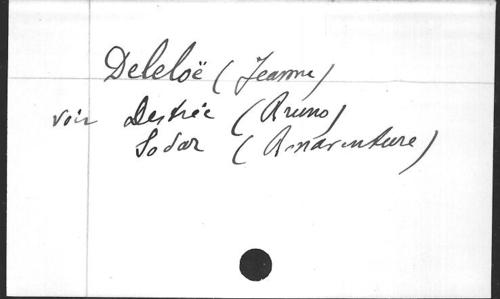 Deleloë (Jeanne)
voir Destrée (Bruno)
Sodar (Bonaventure)